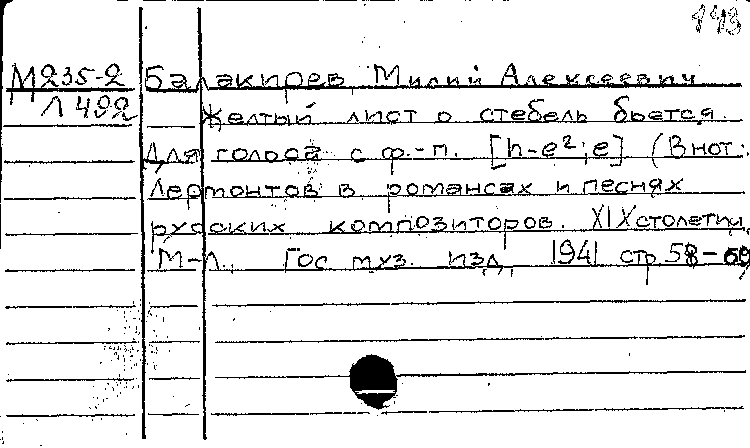 143
М235-2 Балакирев, Милий Алексеевич
Л 492 Желтый лист о стебель бьется.
Для голоса с ф.-п. [h-e²; e] (В нот.:
Лермонтов в романсах и песнях
русских композиторов. XIX столетия.
М-Л., Гос. муз. изд., 1941 стр. 58-60